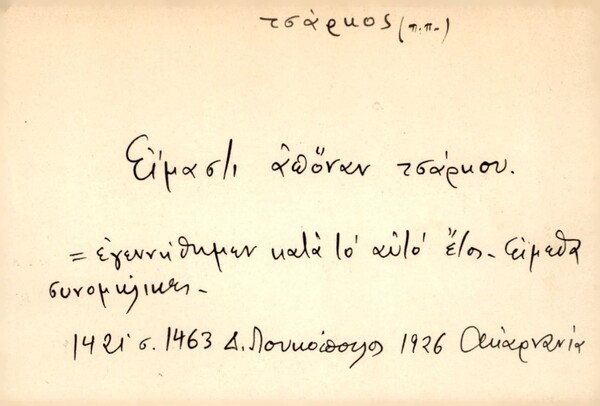 τσάρκος (π.π.)
Εἴμαστι ἀπὅναν τσάρκου.
= ἐγεννήθημεν κατὰ τὸ αὐτὸ ἔτος - Εἴμεθα
συνομήλικες -
1421 σ. 1463 Δ. Λουκόπουλος 1926 Ακαρνανία